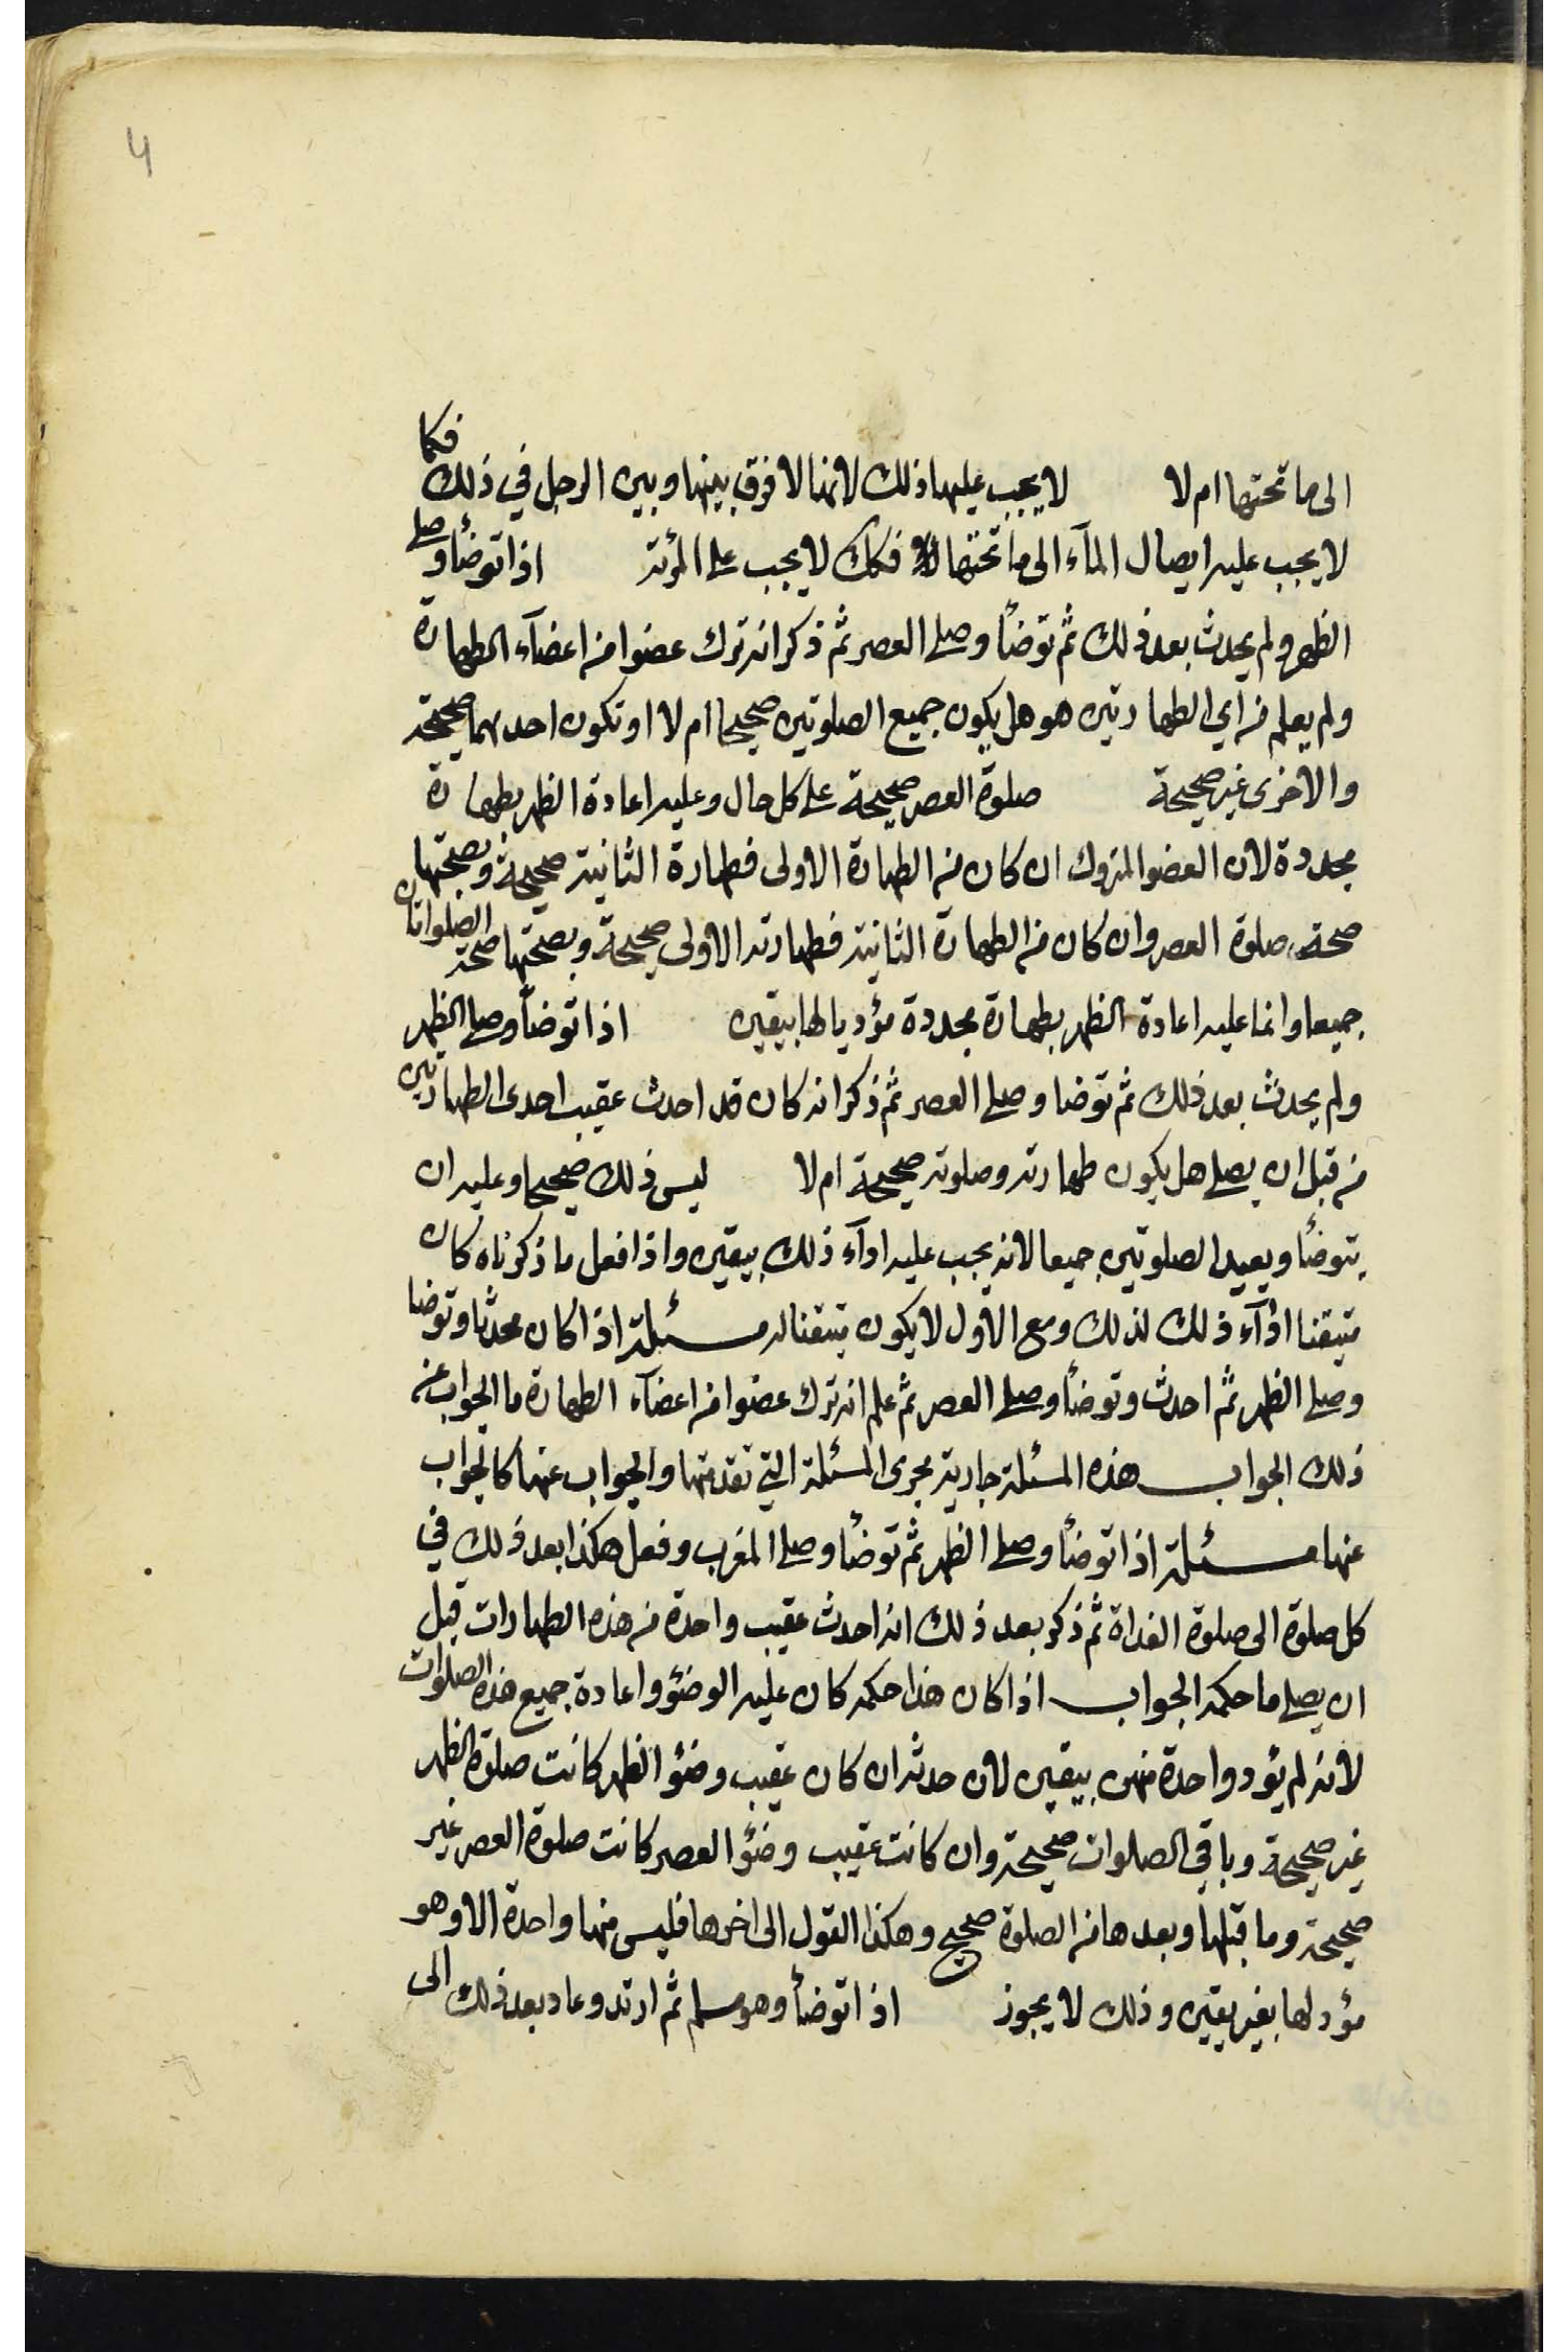 4
الى ما تحتها ام لا لا يجب عليها ذلك لانها لا فرق بينها وبين الرجل في ذلك فكما
لا يجب عليه ايصال المآء الى ما تحتها فكك لا يجب على المرئة اذا توضأ وصلى
الظهر ولم يحدث بعد ذلك ثم توضأ وصلى العصر ثم ذكر انه ترك عضوا من اعضآء الطهارة
ولم يعلم من اي الطهارتين هو هل يكون جميع الصلوتين صحيحا ام لا او تكون احديهما صحيحة
والاخرى غير صحيحة صلوة العصر صحيحة على كل حال وعليه اعادة الظهر بطهارة
مجددة لان العضو المتروك ان كان من الطهارة الاولى فطهارة الثانية صحيحة وبصحتها
صحة صلوة العصر وان كان من الطهارة الثانية فطهارته الاولى صحيحة وبصحتها صحة الصلواتان
جميعا وانما عليه اعادة الظهر بطهارة مجددة مؤديا لها بيقين اذا توضأ وصلى الظهر
ولم يحدث بعد ذلك ثم توضا وصلى العصر ثم ذكر انه كان قد احدث عقيب احدى الطهارتين
من قبل ان يصلى هل يكون طهارته وصلوته صحيحة ام لا ليس ذلك صحيحا وعليه ان
يتوضأ ويعيد الصلوتين جميعا لانه يجب عليه ادآء ذلك بيقين واذا فعل ما ذكرناه كان
متيقنا ادآء ذلك لذلك ومع الاول لا يكون متيقنا له مسئلة اذا كان محدثا وتوضا
وصلى الظهر ثم احدث وتوضأ وصلى العصر ثم علم انه ترك عضوا من اعضآء الطهارة ما الجواب عن
ذلك الجواب هذه المسئلة جارية مجرى المسئلة التي تقدمتها والجواب عنها كالجواب
عنها مسئلة اذا توضأ وصلى الظهر ثم توضأ وصلى المغرب وفعل هكذا بعد ذلك في
كل صلوة الى صلوة الغداة ثم ذكر بعد ذلك انه احدث عقيب واحدة من هذه الطهارات قبل
ان يصلى ما حكمه الجواب اذا كان هذا حكمه كان عليه الوضؤ واعادة جميع هذه الصلوات
لانه لم يؤد واحدة منهن بيقين لان حدثه ان كان عقيب وضؤ الظهر كانت صلوة الظهر
غير صحيحة وباقي الصلوات صحيحة وان كانت عقيب وضؤ العصر كانت صلوة العصر غير
صحيحة وما قبلها وبعدها من الصلوة صحيح وهكذا القول الى اخرها فليس منها واحدة الا وهو
مؤد لها بغير يقين وذلك لا يجوز اذا توضأ وهو مسلم ثم ارتد وعاد بعد ذلك الى